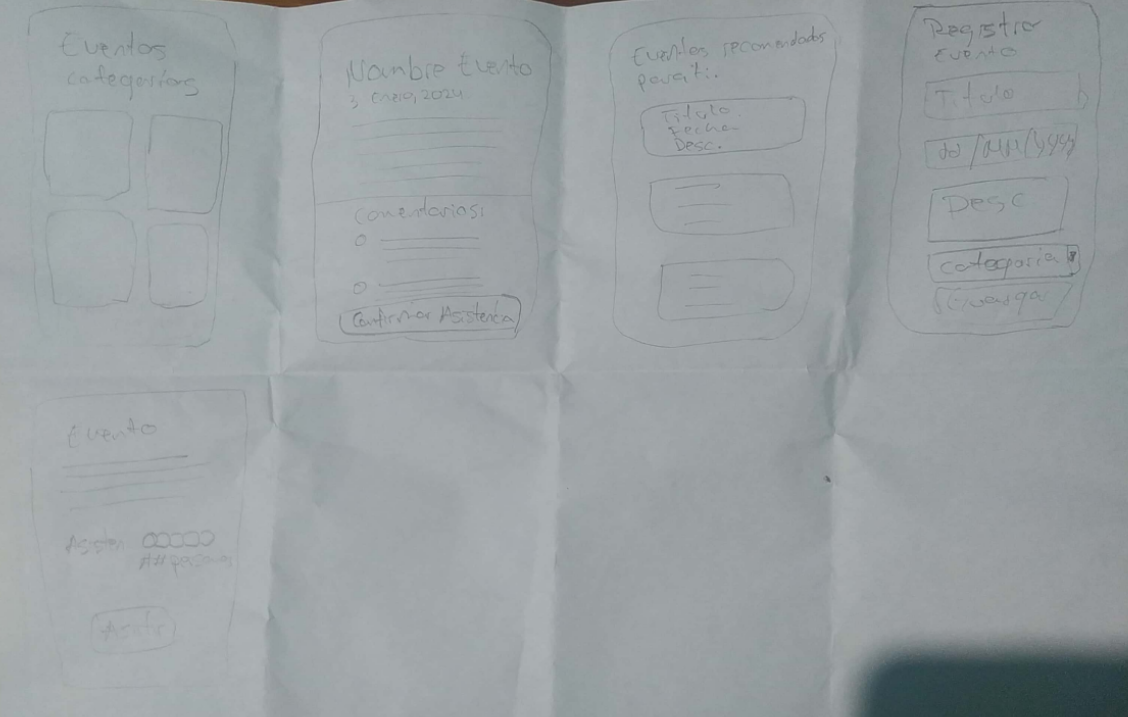 Eventos
categorías
Nombre Evento
3 Enero, 2024
Comentarios:
Confirmar Asistencia
Eventos recomendados
para ti.
Titulo
Fecha
Desc.
Registrar
Evento
Titulo
dd/MM/yyyy
Desc
categoria
Evento
Asisten
### personas
Asistir